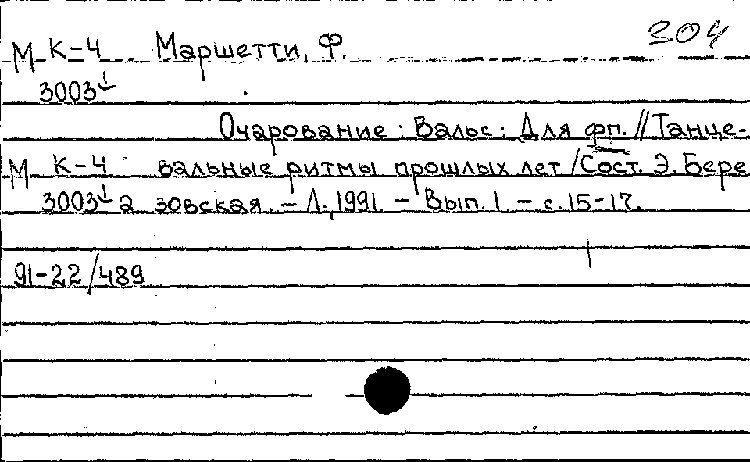 304
М К-4 Маршетти, Ф.
3003
Очарование: Вальс: Для фп. // Танце-
М К-4 вальные ритмы прошлых лет / Сост. Э. Бере
3003 а зовская. – Л., 1991. – Вып. 1 – с. 15-17.
91-22/489